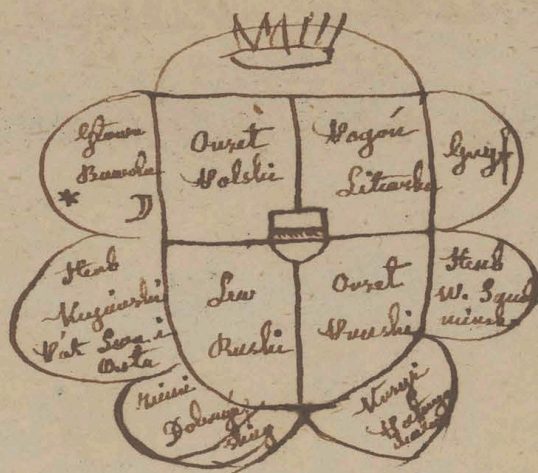 Głowa
Bawola
Orzeł
Polski
Pogoń
Litewska
Gryf
Herb
Kujawski
Pół Lwa i
Orła
Lew
Ruski
Orzeł
Pruski
Herb
W.
Ziemi